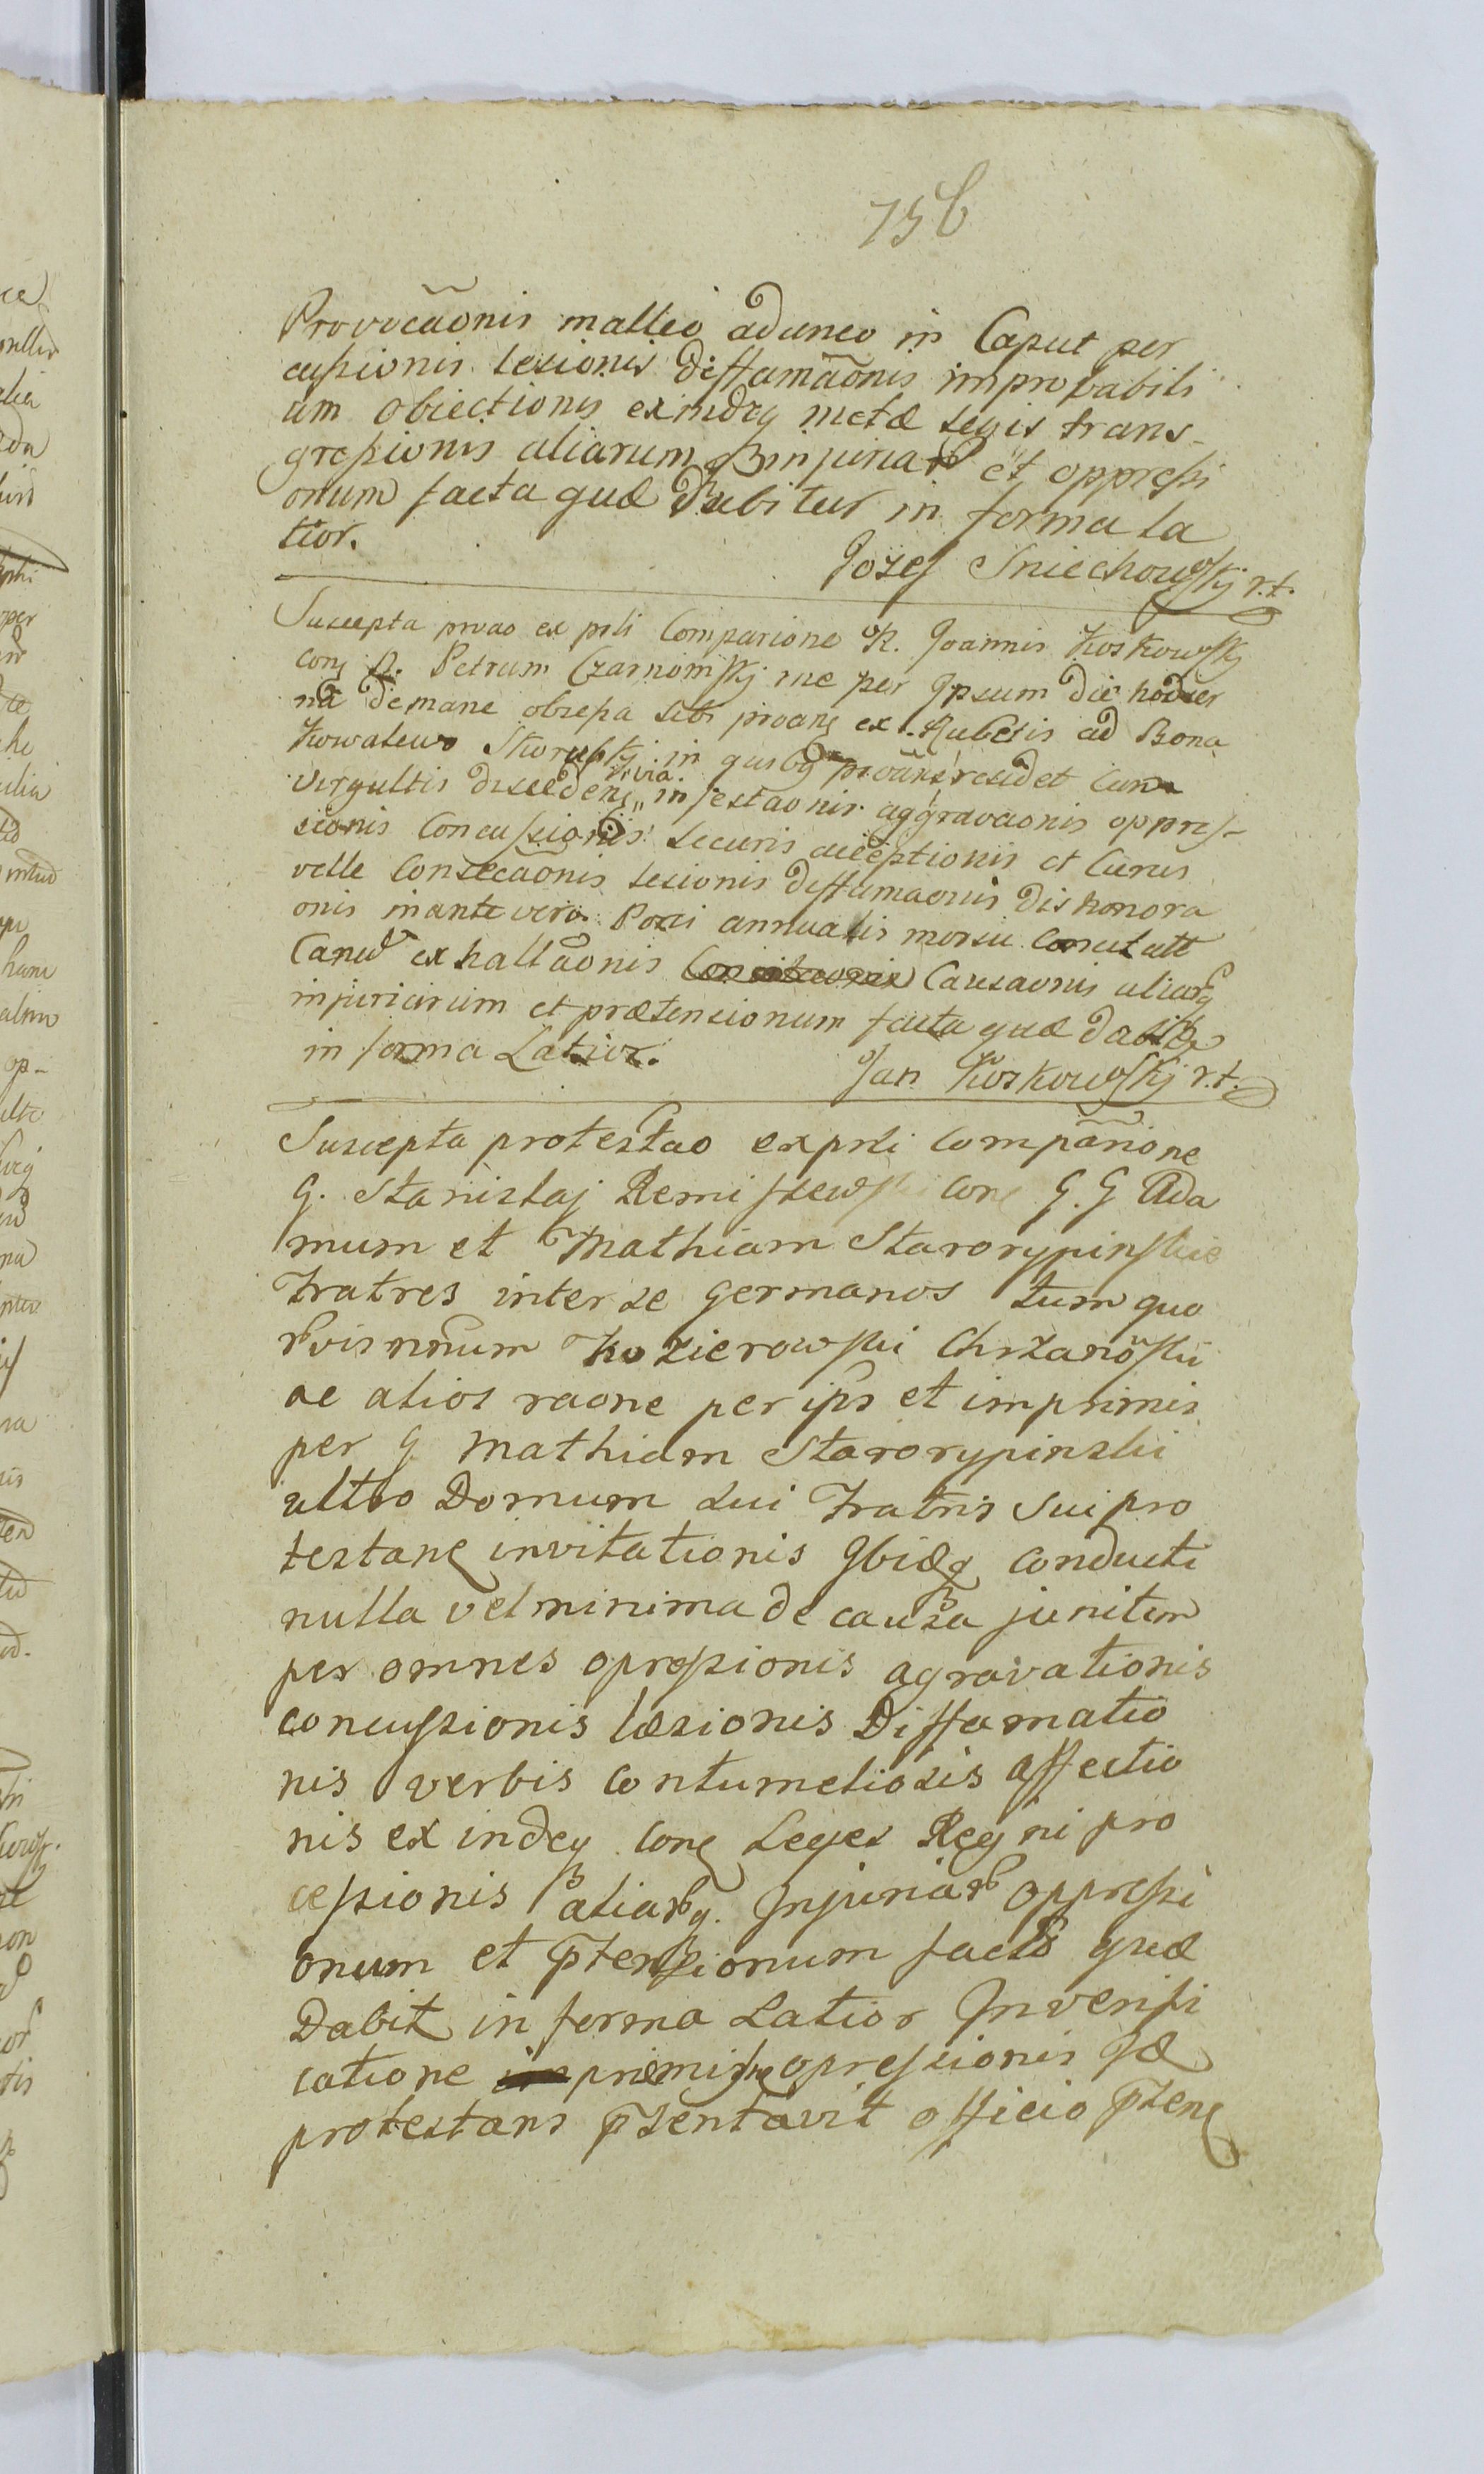 756
Provocãonis malleo adunco in Caput per
cussionis lesionis diffamãonis improbabili
um obiectionis exindeq metæ legis trans-
gressionis aliarum injuriar et oppressi
onum facta quæ dabitur in forma la
tior.
Jozef Sniechowskj r.t.
Suscepta prtao ex prli Comparione R. Joannis Koskowskj
con R. Petrum Czarnomskj me per Ipsum die hodier
na de mane obsessa sibi proane ex Rubesis ad Bona
Kowalewo Skorupkj in quibq proãns residet cum
via
virgultis discedens in festaonis aggravaonis oppres-
sionis Concussionis securis acceptionis et Currus
velle Consecãonis lesionis deffamaonis dishonora
onis inante vero Porci annualis morsu
Canu exhaltãonis Causaonis aliarq
injuriarum et prætensionum facta quæ dabit
in forma Latior.
Jan Koskowskj r.t.
Suscepta protestao ex prli Compãrione
G. Stanislaj Remiszewski con G. G Ada
mum et Mathiam Starorypinskie
Fratres inter se germanos tum quo
vis nnum Kozierowski Chrzanõski
ac alios raone per ips et imprimis
per G Mathiam Starorypinski
ultro Domum sui Fratris sui pro
testane invitationis Ibidq conducti
nulla vel minima de causa junitim
per omnes opressionis agravationis
concussionis læsionis Diffamatio
nis verbis contumeliosis affectio
nis ex indeq con Leges Regni pro
cessionis aliarq. Injuriar oppressi
onum et ptensionum facta quæ
Dabit in forma Latior In verifi
catione præmissæ opressionis Id
protestans psentavit officio psens